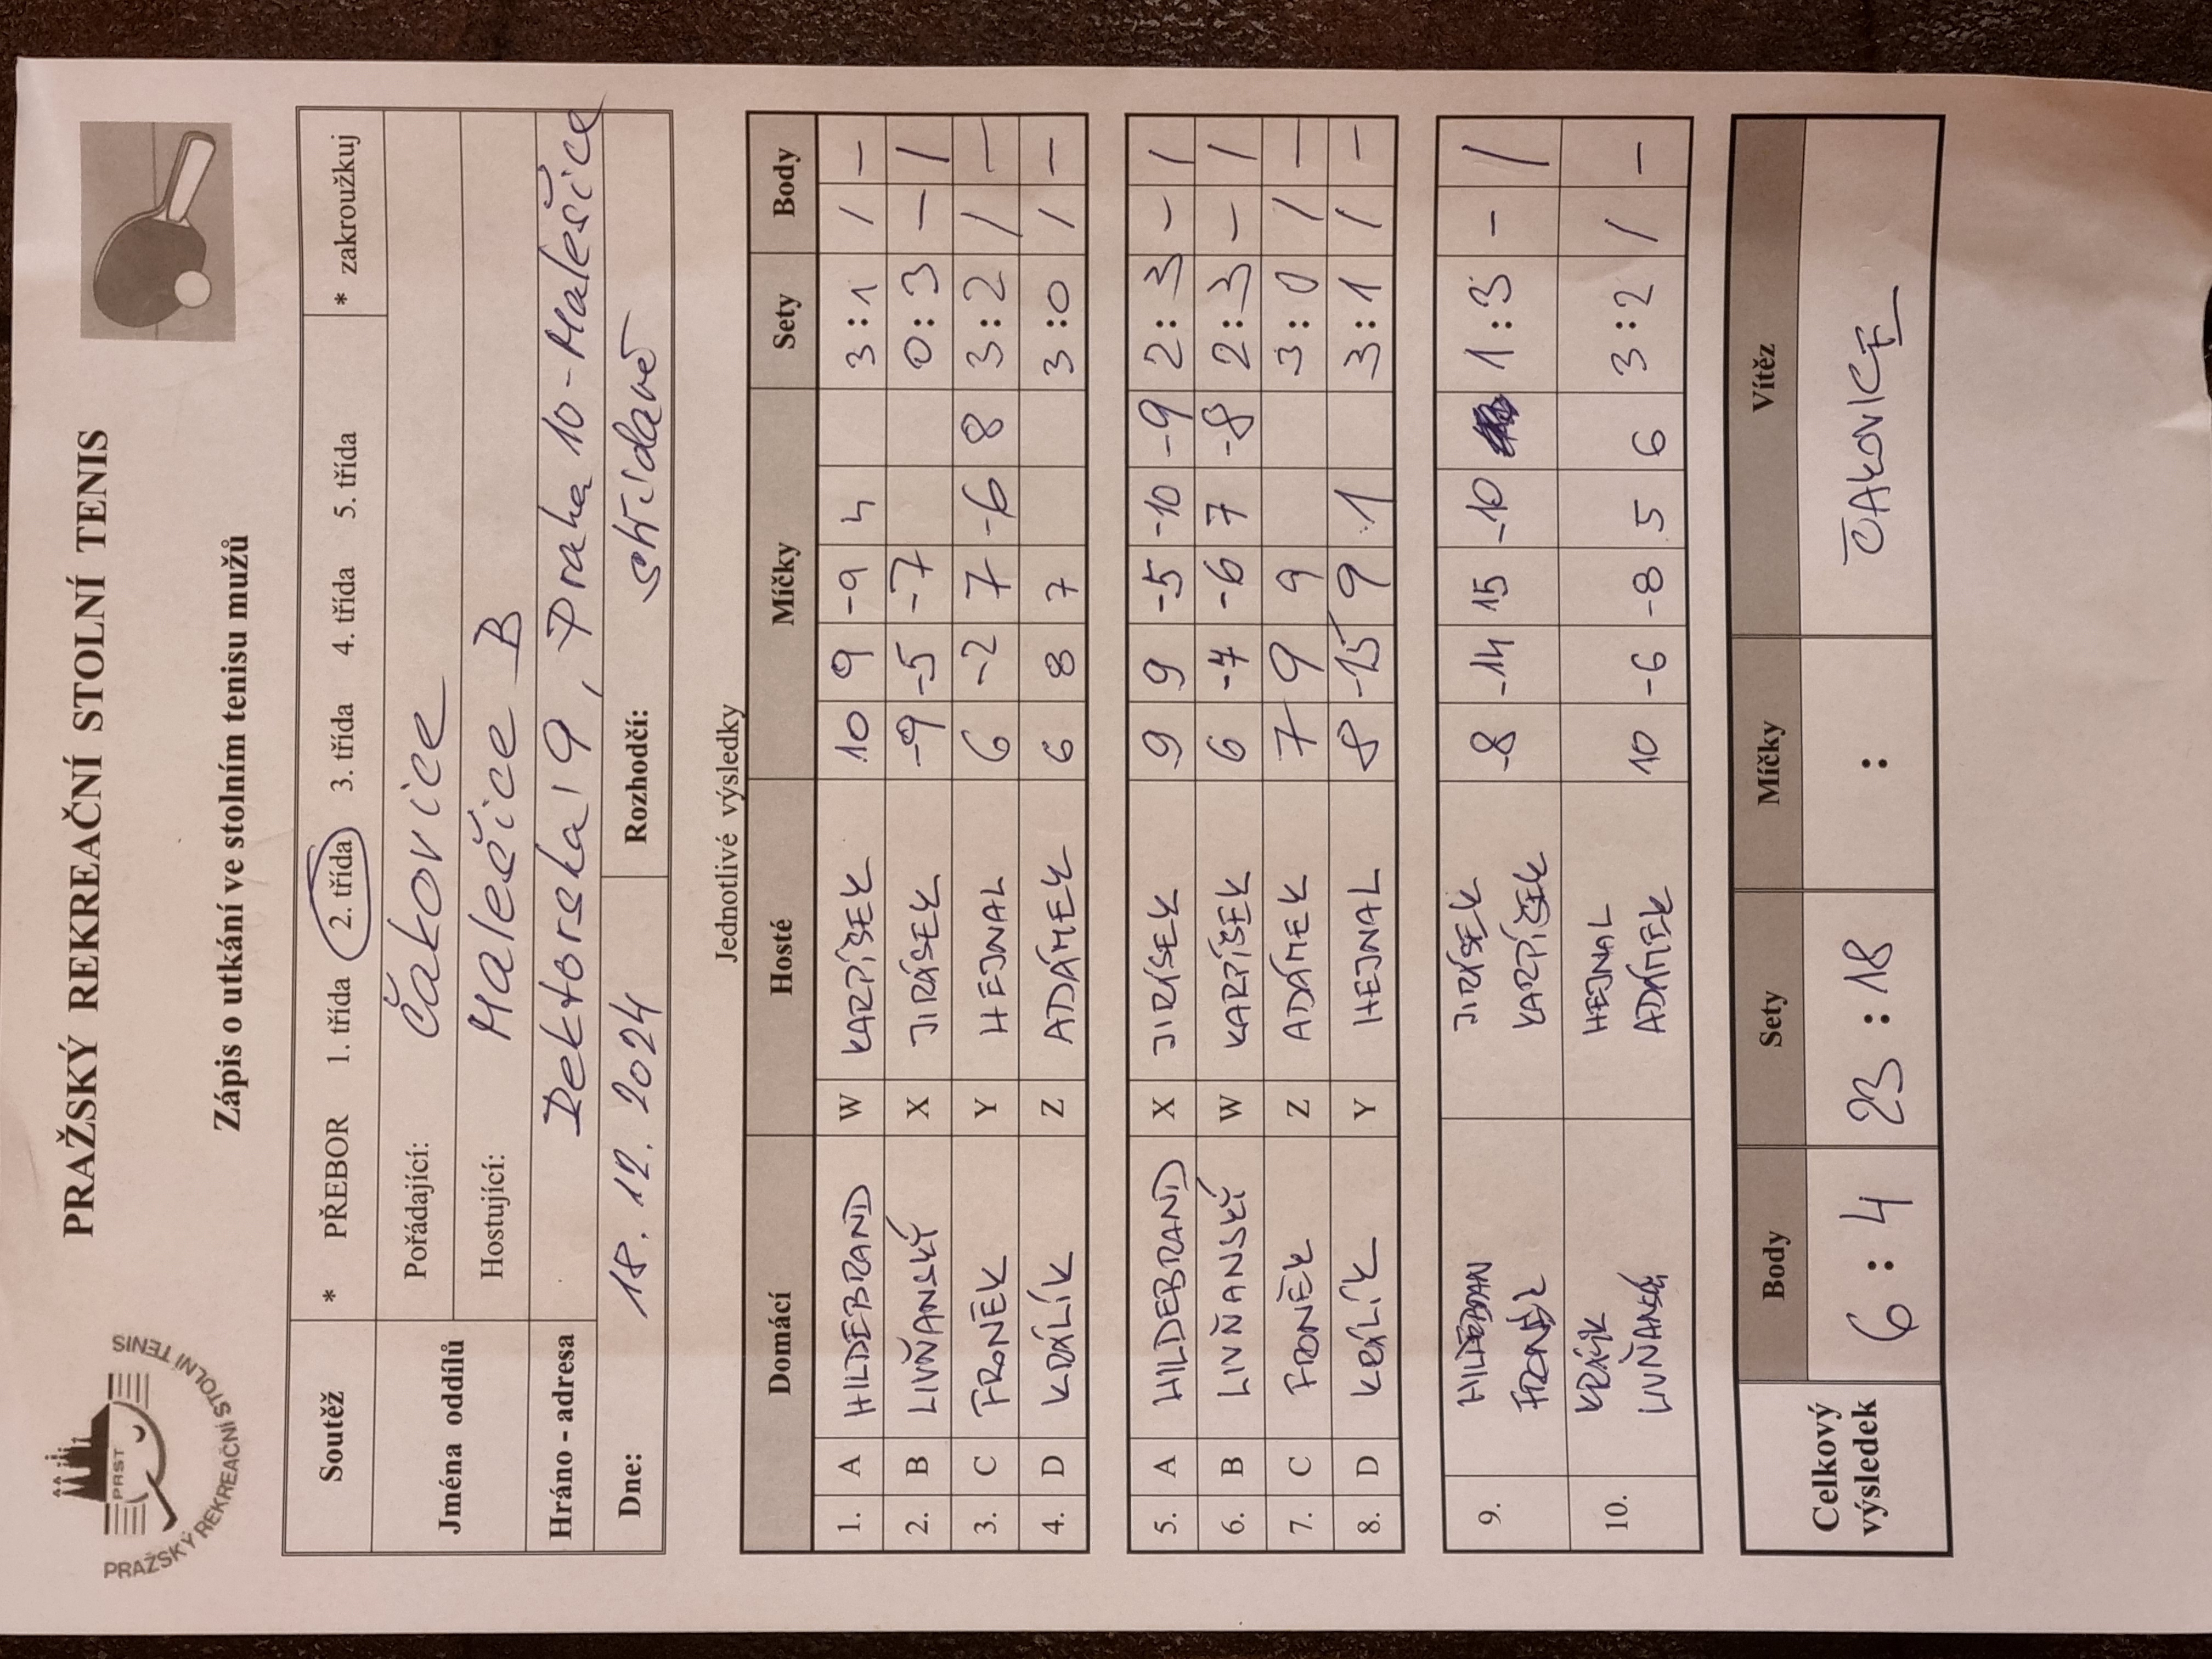 PRAŽSKÝ REKREAČNÍ STOLNÍ TENIS
PRST
PRAŽSKÝ REKREAČNÍ STOLNÍ TENIS
Zápis o utkání ve stolním tenisu mužů
Soutěž * PŘEBOR 1. třída 2. třída 3. třída 4. třída 5. třída * zakroužkuj
Jména oddílů
Pořádající: Čakovice
Hostující: Malešice B
Hráno - adresa Dektorska 19, Praha 10 - Malešice
Dne: 18. 12. 2024 Rozhodčí: střídavě
Jednotlivé výsledky
Domácí Hosté Míčky Sety Body
1. A HILDEBRAND W KARPÍŠEK 10 9 -9 4 3:1 / –
2. B LIVŇANSKÝ X JIRÁSEK -9 -5 -7 0:3 – /
3. C FRONĚK Y HEJNAL 6 -2 7 -6 8 3:2 / –
4. D KRÁLÍK Z ADÁMEK 6 8 7 3:0 / –
5. A HILDEBRAND X JIRÁSEK 9 9 -5 -10 -9 2:3 – /
6. B LIVŇANSKÝ W KARPÍŠEK 6 -7 -6 7 -8 2:3 – /
7. C FRONĚK Z ADÁMEK 7 9 9 3:0 / –
8. D KRÁLÍK Y HEJNAL 8 -15 9 1 3:1 / –
9. JIRÁSEK -8 -14 15 -10 1:3 – /
KARPÍŠEK
10. KRÁLÍK HEJNAL 10 -6 -8 5 6 3:2 / –
ADÁMEK
Celkový výsledek
Body Sety Míčky Vítěz
6 : 4 23 : 18 : ČAKOVICE